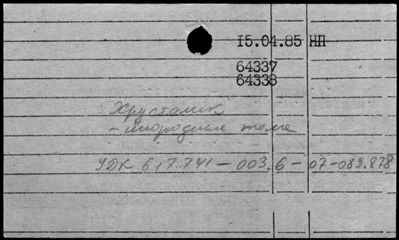 15.04.85 НП
64337
64338
Хрусталик
- инородные тела
УДК 617.741-003.6-07-089.878